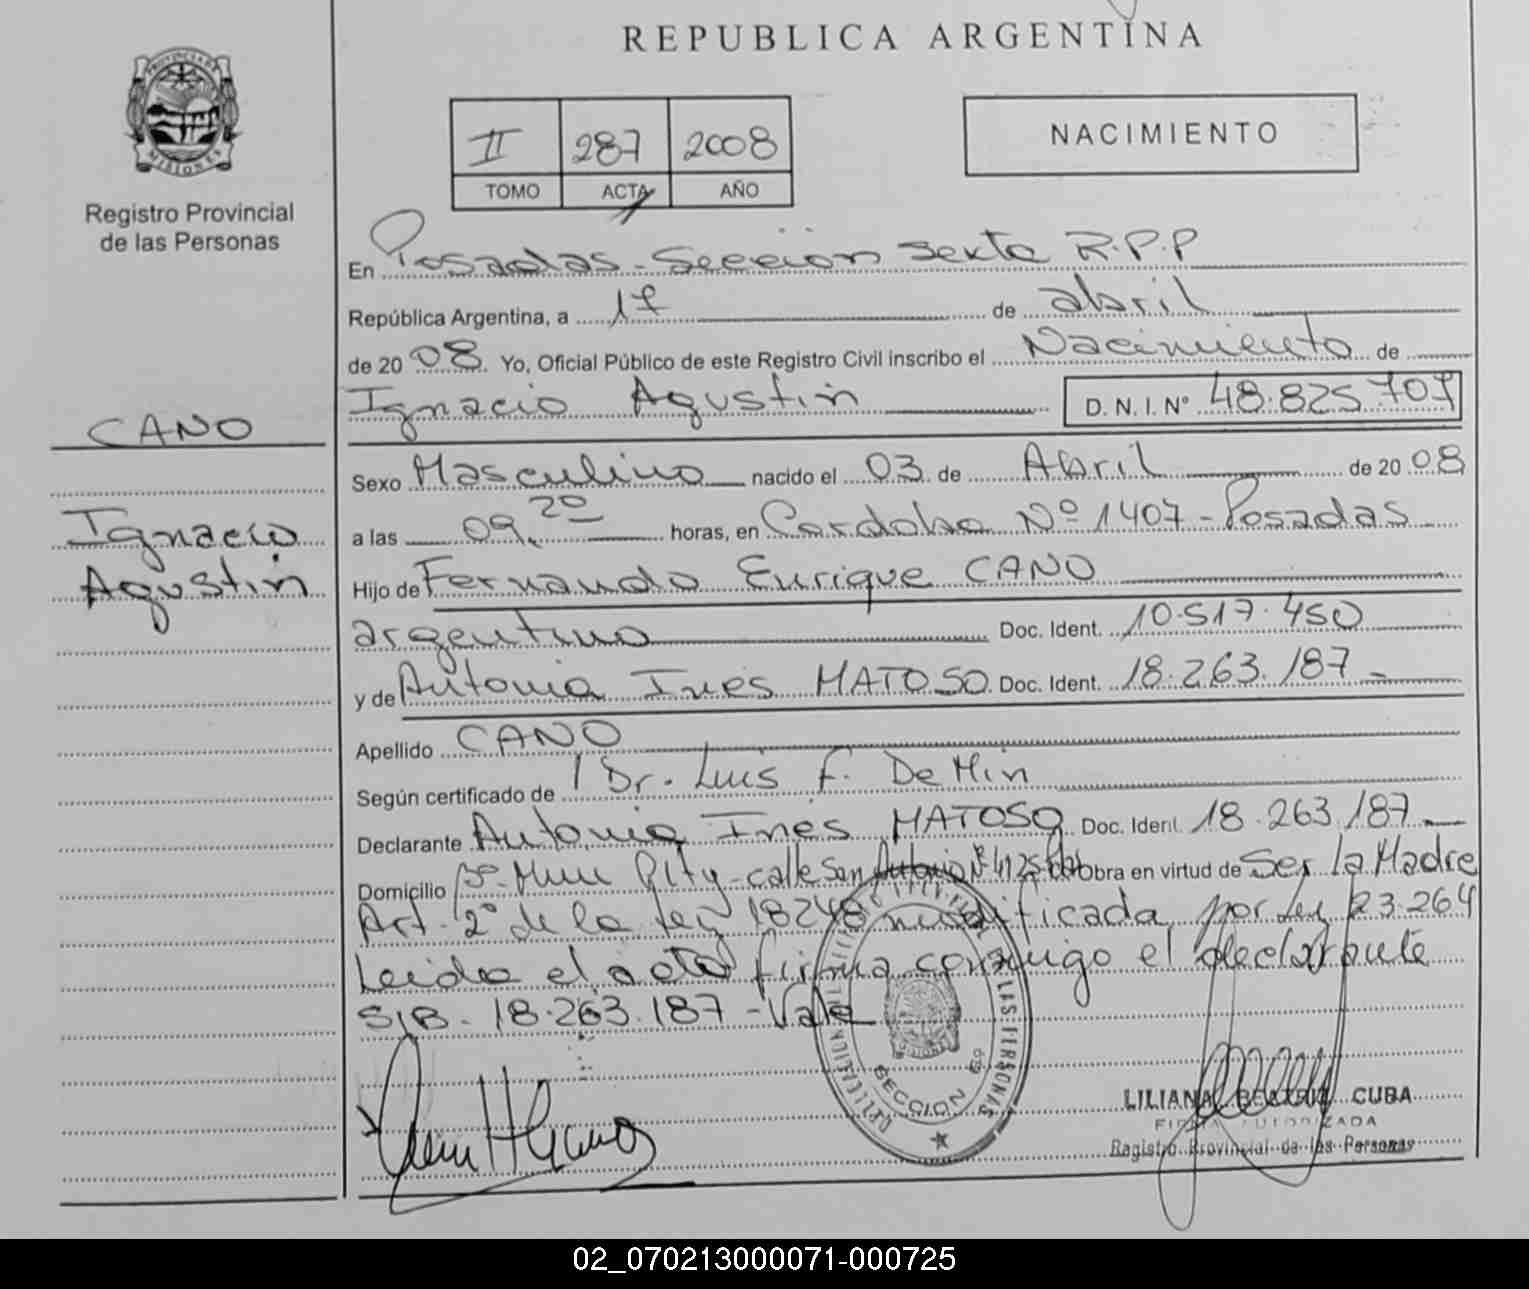 REPUBLICA ARGENTINA
PROVINCIA DE MISIONES
Registro Provincial
de las Personas
II 287 2008
TOMO ACTA AÑO
NACIMIENTO
En Posadas - Sección Sexta R.P.P
República Argentina, a 17 de abril
de 2008. Yo, Oficial Público de este Registro Civil inscribo el Nacimiento de
Ignacio Agustín D.N.I. Nº 48.825.707
CANO
Ignacio
Agustín
Sexo Masculino nacido el 03 de Abril de 2008
a las 09.20 horas, en Cordoba Nº 1407 - Posadas
Hijo de Fernando Enrique CANO
argentino Doc. Ident. 10.517.450
y de Antonia Inés MATOSO Doc. Ident. 18.263.187 -
Apellido CANO
Según certificado de Dr. Luis F. De Min
Declarante Antonia Inés MATOSO Doc. Ident. 18.263.187 -
Domicilio calle San Antonio Nº 4125 Obra en virtud de Ser la Madre
Art. 2º de la Ley 18248 modificada por Ley 23.264
Leída el acta firma conmigo el declarante
S/B - 18.263.187 - Vale
SECCION 6º
LILIANA BEATRIZ CUBA
FIRMA AUTORIZADA
Registro Provincial de las Personas
02_070213000071-000725